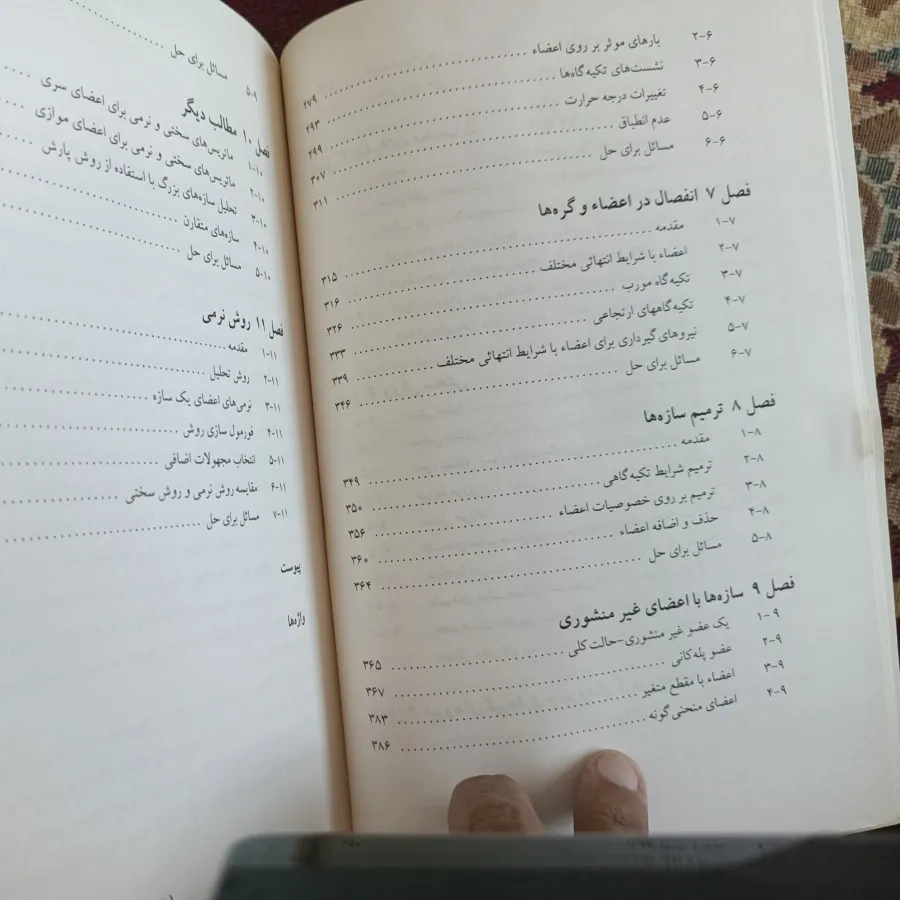 ۲-۶ بارهای موثر بر روی اعضاء ........ ۲۷۹
۳-۶ نشست‌های تکیه‌گاه‌ها ........ ۲۹۳
۴-۶ تغییرات درجه حرارت ........ ۲۹۹
۵-۶ عدم انطباق ........ ۳۰۷
۶-۶ مسائل برای حل ........ ۳۱۱
فصل ۷ انفصال در اعضاء و گره‌ها
۱-۷ مقدمه ........ ۳۱۵
۲-۷ اعضاء با شرایط انتهائی مختلف ........ ۳۱۶
۳-۷ تکیه‌گاه مورب ........ ۳۲۶
۴-۷ تکیه‌گاههای ارتجاعی ........ ۳۳۳
۵-۷ نیروهای گیرداری برای اعضاء با شرایط انتهائی مختلف ........ ۳۳۹
۶-۷ مسائل برای حل ........ ۳۴۶
فصل ۸ ترمیم سازه‌ها
۱-۸ مقدمه ........ ۳۴۹
۲-۸ ترمیم شرایط تکیه‌گاهی ........ ۳۵۰
۳-۸ ترمیم بر روی خصوصیات اعضاء ........ ۳۵۶
۴-۸ حذف و اضافه اعضاء ........ ۳۶۰
۵-۸ مسائل برای حل ........ ۳۶۴
فصل ۹ سازه‌ها با اعضای غیر منشوری
۱-۹ یک عضو غیر منشوری-حالت کلی ........ ۳۶۵
۲-۹ عضو پله‌کانی ........ ۳۶۷
۳-۹ اعضاء با مقطع متغیر ........ ۳۸۳
۴-۹ اعضای منحنی‌گونه ........ ۳۸۶
۵-۹ مسائل برای حل ........
فصل ۱۰ مطالب دیگر
۱-۱۰ ماتریس‌های سختی و نرمی برای اعضای سری
۲-۱۰ ماتریس‌های سختی و نرمی برای اعضای موازی
۳-۱۰ تحلیل سازه‌های بزرگ با استفاده از روش پارش
۴-۱۰ سازه‌های متقارن ........
۵-۱۰ مسائل برای حل ........
فصل ۱۱ روش نرمی
۱-۱۱ مقدمه ........
۲-۱۱ روش تحلیل ........
۳-۱۱ نرمی‌های اعضای یک سازه ........
۴-۱۱ فورمول سازی روش ........
۵-۱۱ انتخاب مجهولات اضافی ........
۶-۱۱ مقایسه روش نرمی و روش سختی ........
۷-۱۱ مسائل برای حل ........
پیوست
واژه‌ها